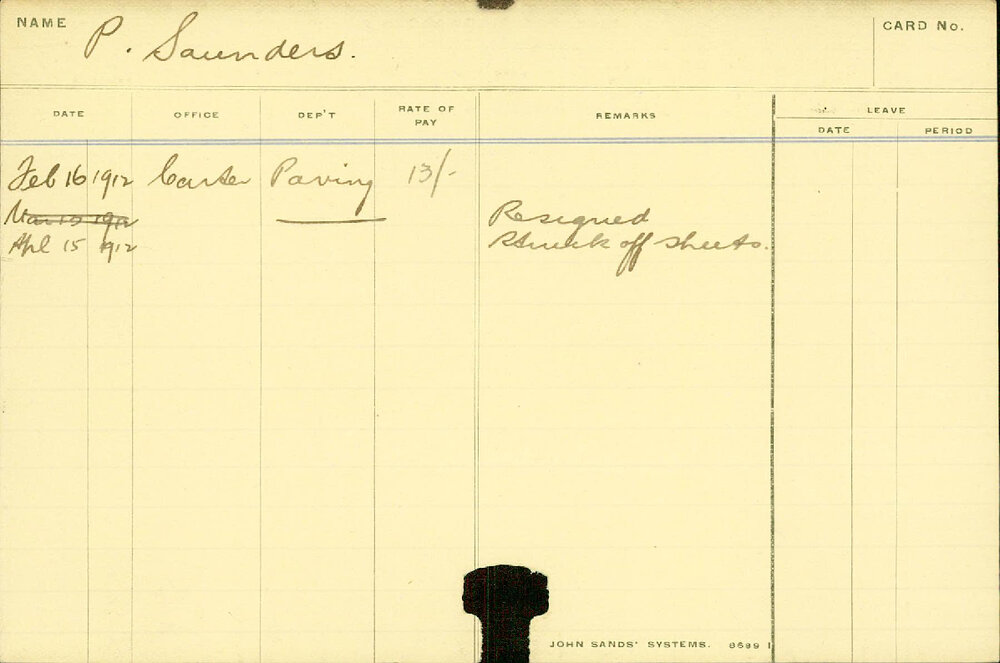 NAME P. Saunders. CARD No.
DATE OFFICE DEP'T RATE OF PAY REMARKS LEAVE
DATE PERIOD
Feb 16 1912 Carter Paving 13/-
Mar 15 1912 Resigned
Apl 15 1912 Struck off sheets.
JOHN SANDS' SYSTEMS. 8699 1